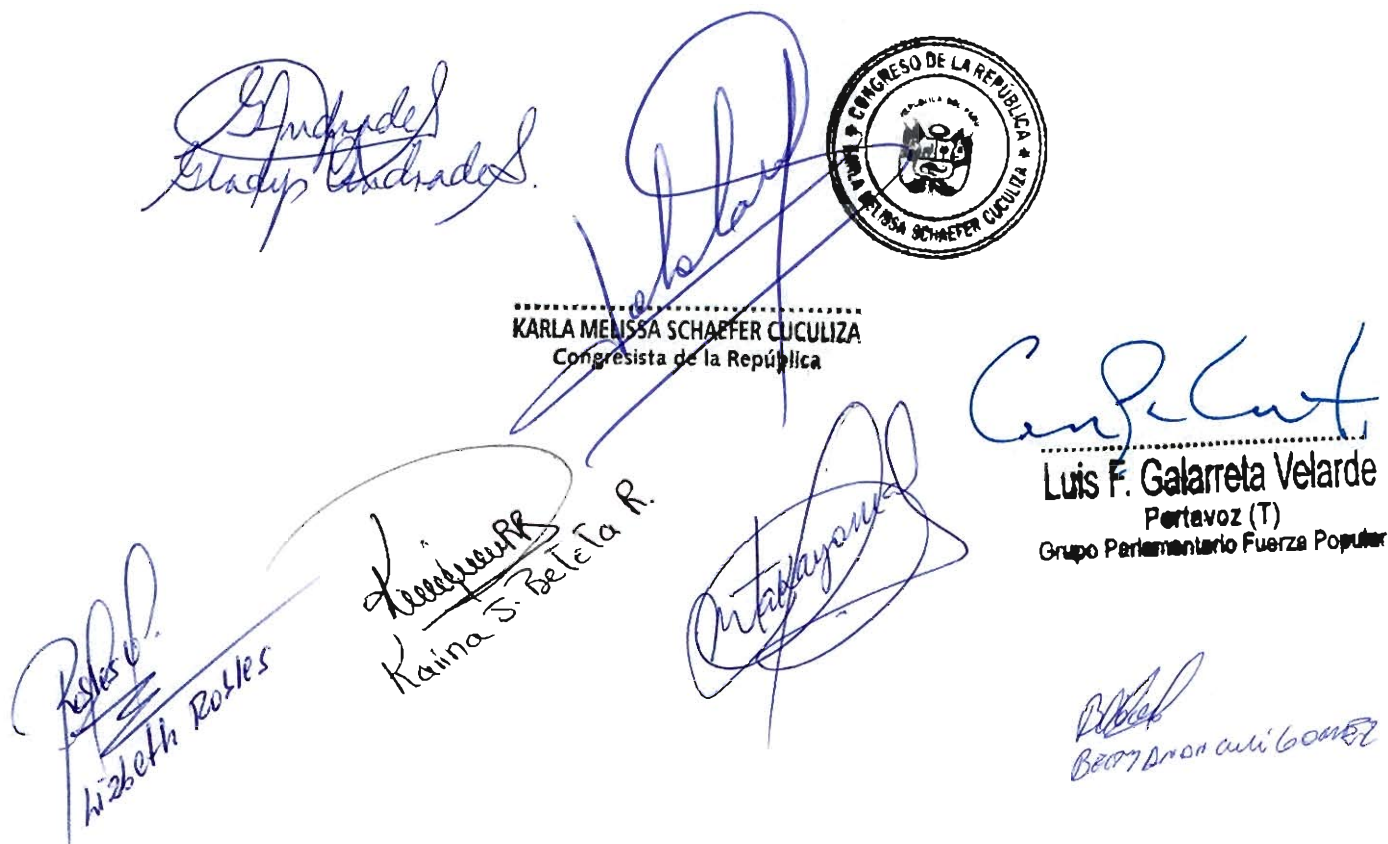 GAndradeS
Gladys Andrade S.
CONGRESO DE LA REPÚBLICA
REPÚBLICA DEL PERÚ
KARLA MELISSA SCHAEFER CUCULIZA
KARLA MELISSA SCHAEFER CUCULIZA
Congresista de la República
Luis F. Galarreta Velarde
Portavoz (T)
Grupo Parlamentario Fuerza Popular
Karina J. Beteta R.
Robles
Lizbeth Robles
BETTY ANANCULI GOMEZ